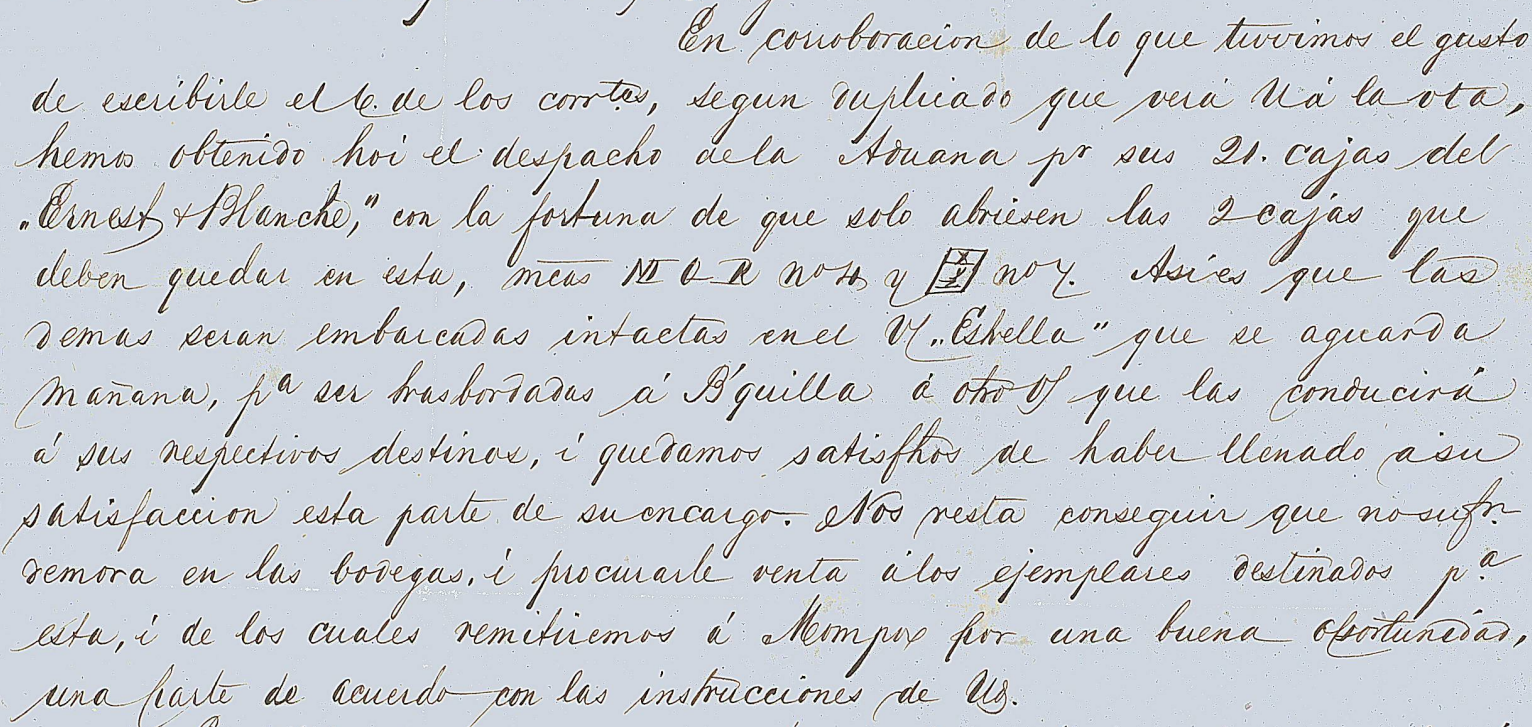 En corroboracion de lo que tuvimos el gusto
de escribirle el 6. de los corrtes, segun duplicado que verá U á la vta,
hemos obtenido hoi el despacho dela Aduana pr sus 21. cajas del
„Ernest & Blanche," con la fortuna de que solo abriesen las 2 cajas que
deben quedar en esta, mcas M O R no y no 7. Asi es que las
demas seran embarcadas intactas en el V/ „Estrella" que se aguarda
mañana, pa ser trasbordadas á B'quilla á otro V/ que las conducirá
á sus respectivos destinos, i quedamos satisfhos de haber llenado a su
satisfaccion esta parte de su encargo. Nos resta conseguir que no sufrn
demora en las bodegas, i procurarle venta á los ejemplares destinados pa
esta, i de los cuales remitiremos á Mompox por una buena oportunidad,
una parte de acuerdo con las instrucciones de Ud.